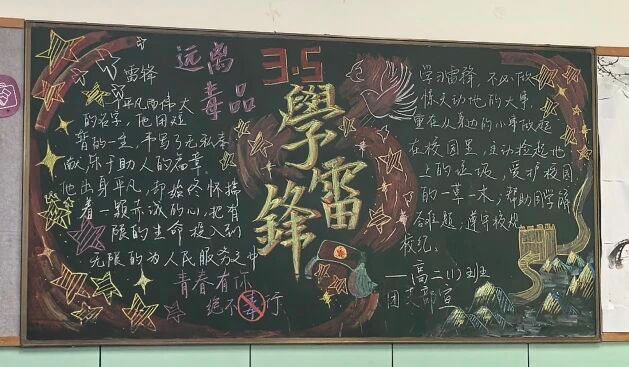 雷锋
一个平凡而伟大
的名字，他用短
暂的一生，书写了无私奉
献，乐于助人的篇章
他出身平凡，却始终怀揣
着一颗赤诚的心，把有
限的生命投入到
无限的为人民服务之中
远离
毒品
青春有你
绝不"毒"行
3.5
學雷
鋒
学习雷锋，不必做
惊天动地的大事，
重在从身边的小事做起
在校园里，主动捡起地
上的垃圾，爱护校园
的一草一木，帮助同学解
答难题，遵守校规
校纪。
——高二（1）班
团支部宣